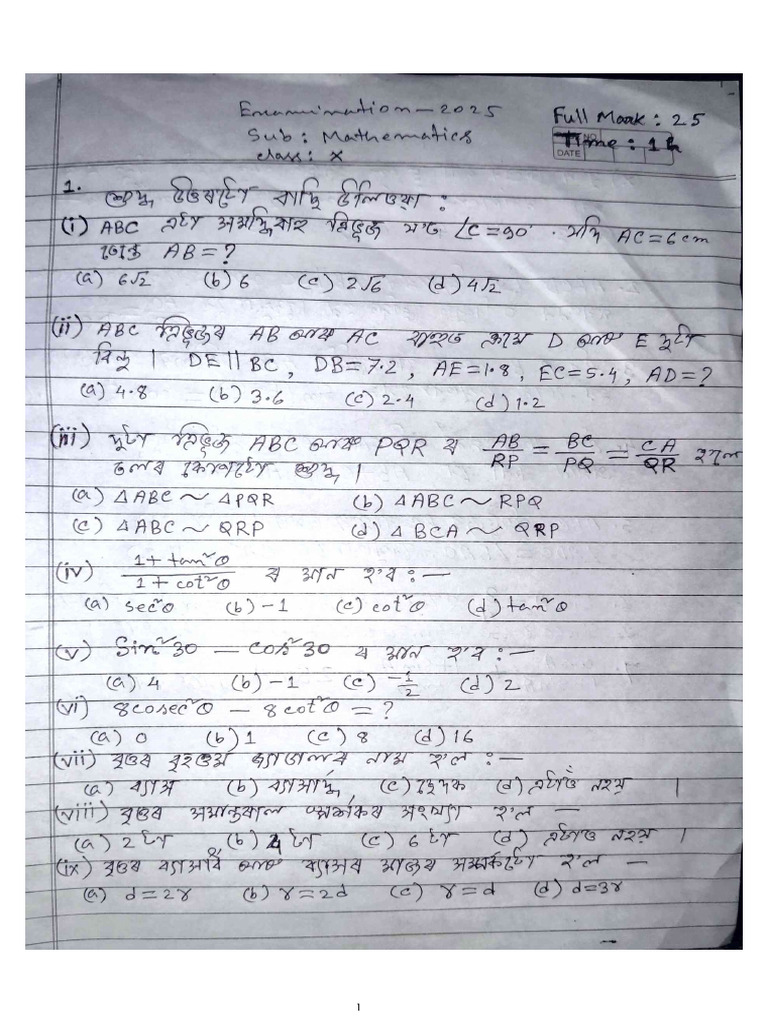 Examination-2025
Full Mark: 25
Sub: Mathematics
NO
DATE
Time: 1h
class: X
1. শুদ্ধ উত্তৰটো বাছি উলিওৱা :
(i) ABC এটা সমদ্বিবাহু ত্ৰিভুজ য'ত ∠C=90°. যদি AC=6cm
তেন্তে AB=?
(a) 6√2 (b) 6 (c) 2√6 (d) 4√2
(ii) ABC ত্ৰিভুজৰ AB আৰু AC বাহুত ক্ৰমে D আৰু E দুটা
বিন্দু। DE||BC, DB=7.2, AE=1.8, EC=5.4, AD=?
(a) 4.8 (b) 3.6 (c) 2.4 (d) 1.2
(iii) দুটা ত্ৰিভুজ ABC আৰু PQR ৰ AB/RP = BC/PQ = CA/QR হ'লে
তলৰ কোনটো শুদ্ধ।
(a) ΔABC ~ ΔPQR (b) ΔABC ~ RPQ
(c) ΔABC ~ QRP (d) ΔBCA ~ QRP
(iv) 1+tan²θ/1+cot²θ ৰ মান হ'ব :—
(a) sec²θ (b) -1 (c) cot²θ (d) tan²θ
(v) Sin²30 — cos²30 ৰ মান হ'ব :—
(a) 4 (b) -1 (c) -1/2 (d) 2
(vi) 8cosec²θ — 8cot²θ = ?
(a) 0 (b) 1 (c) 8 (d) 16
(vii) বৃত্তৰ বৃহত্তম জ্যাডালৰ নাম হ'ল :—
(a) ব্যাস (b) ব্যাসাৰ্দ্ধ (c) ছেদক (d) এটাও নহয়।
(viii) বৃত্তৰ সমান্তৰাল স্পৰ্শকৰ সংখ্যা হ'ল —
(a) 2 টা (b) 4 টা (c) 6 টা (d) এটাও নহয়।
(ix) বৃত্তৰ ব্যাসাৰ্ধ আৰু ব্যাসৰ মাজৰ সম্পৰ্কটো হ'ল —
(a) d=2r (b) r=2d (c) r=d (d) d=3r
1